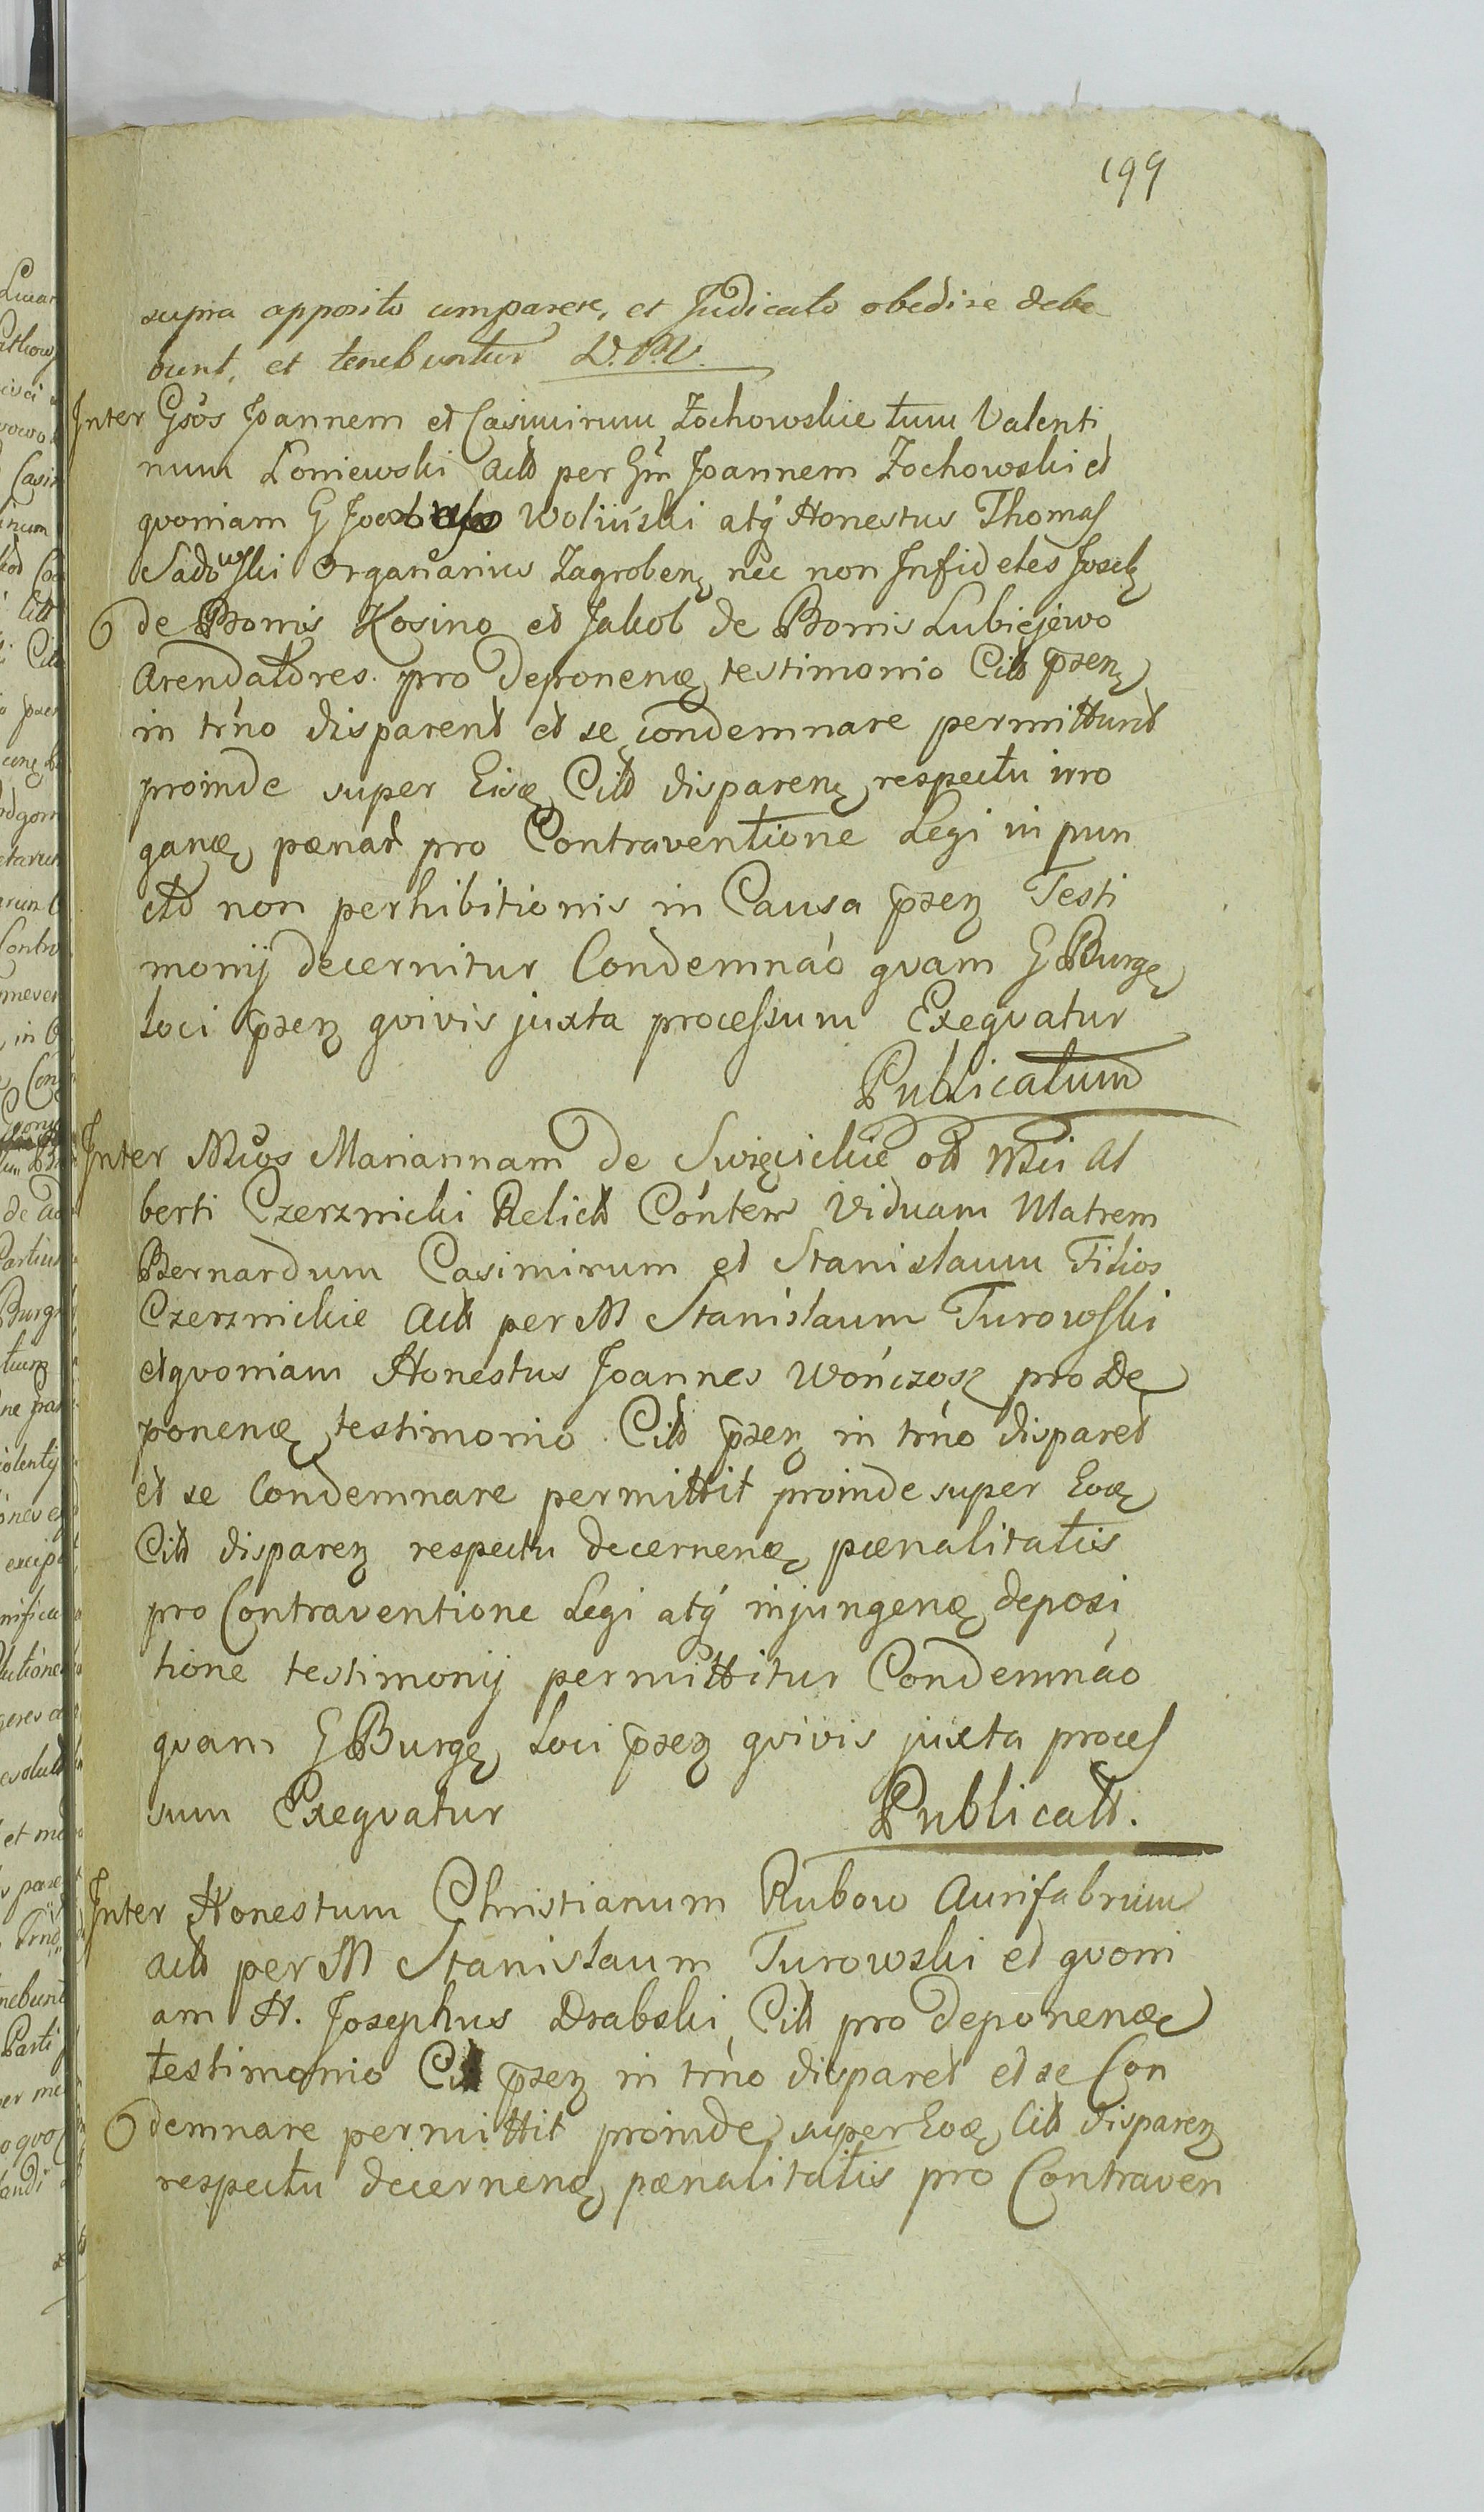 199
supra apposito comparere, et Judicato obedire debe
bunt, et tenebuntur D.P.V.
Inter Gsos Joannem et Casimirum Zochowskie tum Valenti
num Loniewski Actt per Gm Joannem Zochowski et
qvoniam G Woliński atq Honestus Thomas
Sadowski Organarius Zagroben nec non Infideles Josek
de Bonis Kosino et Jakob de Bonis Lubiejewo
Arendatores pro deponenae testimonio Citt prsen
in trno disparent et se condemnare permittunt
proinde super Eisae Citt disparen respectu irro
ganae paenar pro Contraventione Legi in pun
cto non perhibitionis in Causa prsen Testi
monij decernitur Condemnáo qvam G Burge
Loci prsen qvivis juxta processum Exeqvatur
Publicatum
Inter Mgos Mariannam de Swięcickie olt Mci Al
berti Czerznicki Relictt Contem Viduam Matrem
Bernardum Casimirum et Stanislaum Filios
Czerznickie Actt per M Stanislaum Turowski
etqvoniam Honestus Joannes Wończosz pro De
ponenae testimonio Citt prsen in trno disparet
et se Condemnare permittit proinde super Eoae
Citt disparen respectu decernenae paenalitatis
pro Contraventione Legi atq injungenae deposi
tione testimonij permittitur Condemnáo
qvam G Burge Loci prsen qvivis juxta proces
sum Exeqvatur Publicatt.
Inter Honestum Christianum Rubow Aurifabrum
actt per M Stanislaum Turowski et qvoni
am H. Josephus Drabski Citt pro deponenae
testimonio prsen in trno disparet et se Con
demnare permittit proinde super Eoae Citt disparen
respectu decernenae paenalitatis pro Contraven